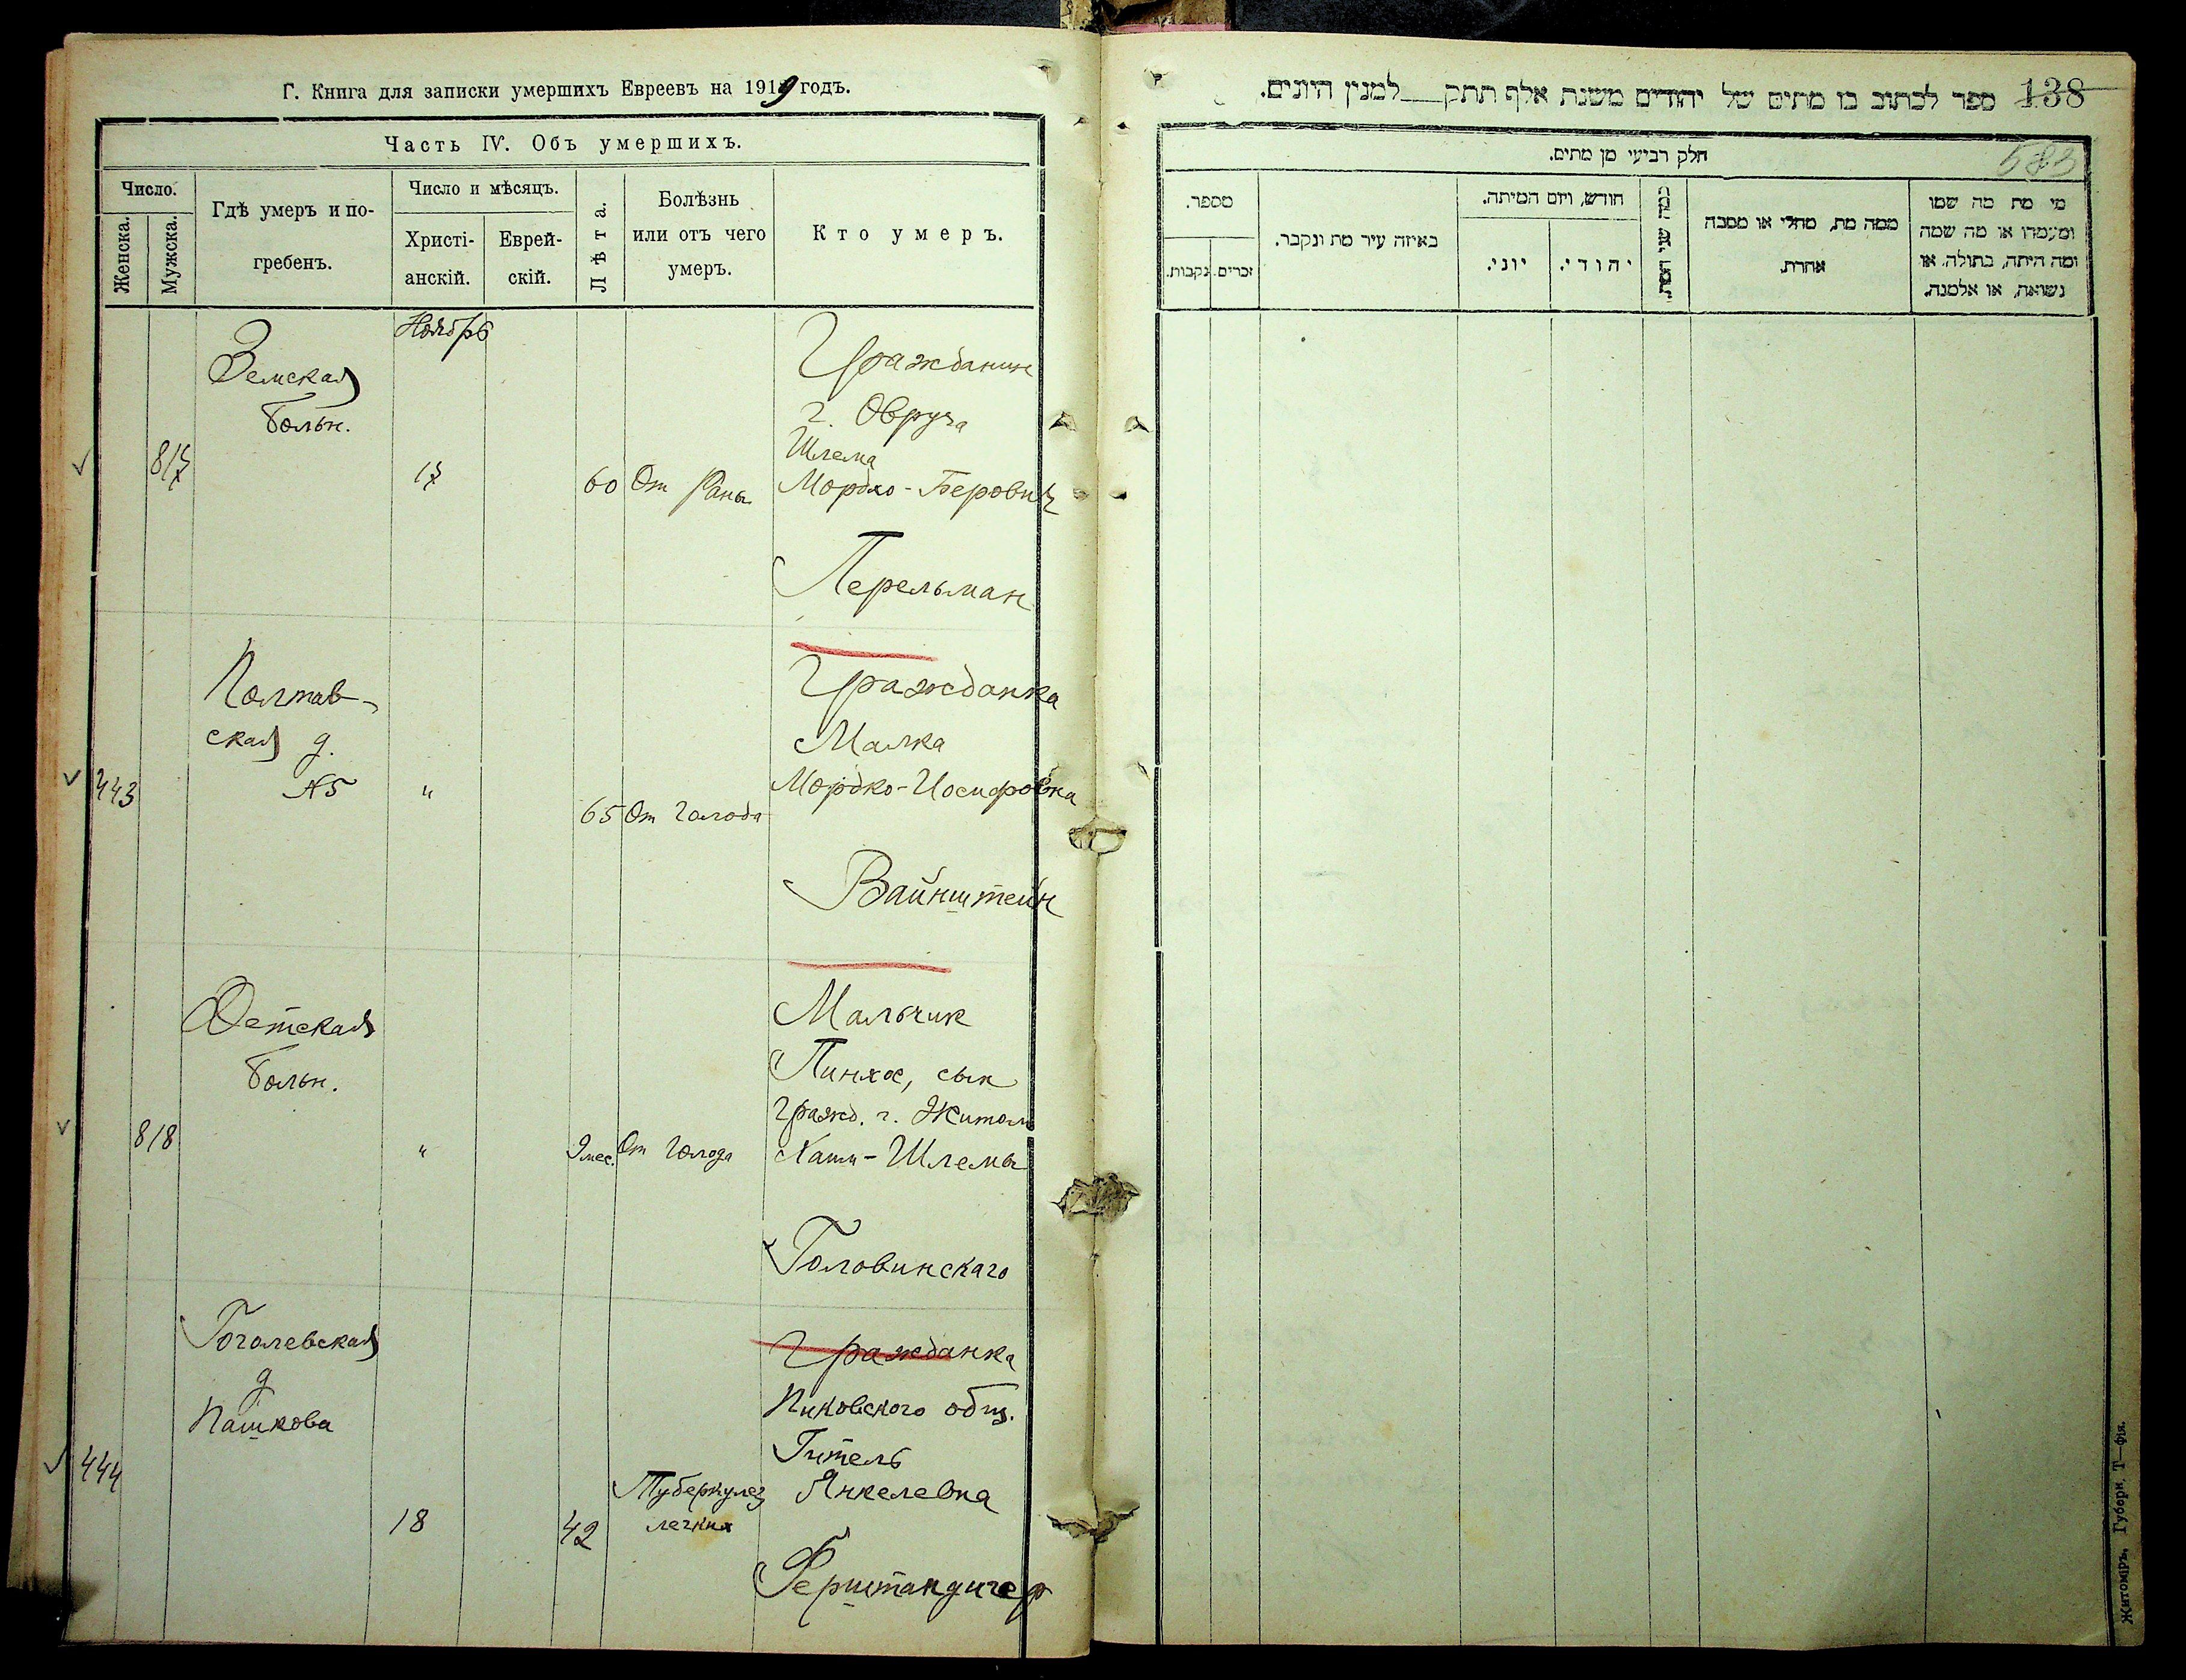 Г. Книга для записки умершихъ Евреевъ на 1919 годъ.
Часть IV. Объ умершихъ.
Число.
Женска.
Мужска.
Гдѣ умеръ и по-
гребенъ.
Число и мѣсяцъ.
Христі-
анскій.
Еврей-
скій.
Лѣта.
Болѣзнь
или отъ чего
умеръ.
Кто умеръ.
Ноябрь
Земская
больн.
817
17
60
От раны
Гражданин
г. Овруча
Шлема
Мордко-Берович
Перельман
Полтав-
ская д.
№5
443
"
65
От голода
Гражданка
Малка
Мордко-Иосифовна
Вайнштейн
Детская
больн.
818
"
9 мес.
От голода
Мальчик
Пинхос, сын
гражд. г. Житом
Хаим-Шлемы
Головинскаго
Гоголевская
д
Пашкова
444
18
42
Туберкулез
легких
Гражданка
Пиковского общ.
Гитель
Янкелевна
Ферштандигер
138
ספר לכתוב בו מתים של יהודים משנת אלף תתק__למנין היונים.
583
חלק רביעי מן מתים.
מספר.
נקבות.
זכרים.
באיזה עיר מת ונקבר.
חודש, ויום המיתה.
יוני.
יהודי.
ממה מת, מחלי או מסבה
אחרת.
מי מת מה שמו
ומעמדו או מה שמה
ומה היתה, בתולה, או
נשואה, או אלמנה.
Житоміръ, Губерн. Т—фія.